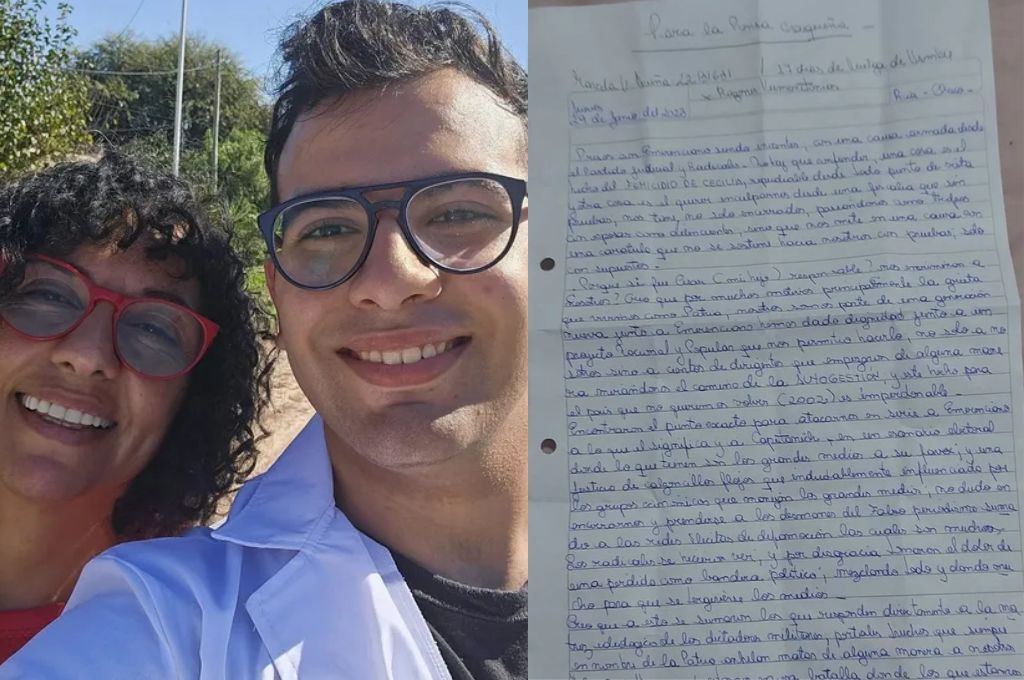 Para la Prensa Chaqueña -
Marcela V. Acuña 22.131.631 / 17 días de huelga de Hambre
x Razones Humanitarias
Jueves
29 de junio del 2023
Rcia - Chaco -
Presos con Emerenciano siendo inocentes, con una causa armada desde
el Partido Judicial y Radicales. Hay que entender, una cosa es el
hecho del FEMICIDIO DE CECILIA, repudiable desde todo punto de vista
y otra cosa es el querer inculparnos desde una fiscalía que sin
pruebas, nos tiene, no solo encerrados, paseandonos como trofeos
con esposas como delincuentes, sino que nos mete en una causa con
una caratula que no se sostiene hacia nosotros con pruebas, solo
con supuestos.
Porque si fue Cesar (mi hijo) responsable? nos incriminan a
nosotros? Creo que por muchos motivos principalmente la grieta
que vivimos como Patria, nosotros somos parte de una generación
nueva junto a Emerenciano hemos dado dignidad junto a un
proyecto Nacional y Popular que nos permitio hacerlo, no solo a no
sotros sino a cientos de dirigentes que empezaron de alguna mane
ra mirandose el camino de la AUTOGESTION y este hecho para
el pais que no queremos volver (2002) es imperdonable -
Encontraron el punto exacto para atacarnos en serie a Emerenciano
a lo que el significa y a Capitanich, en un escenario electoral
donde lo que tienen son los grandes medios a su favor, y una
justicia de calzoncillos flojos que indudablemente influenciado por
los grupos económicos que manejan los grandes medios, no dudo en
encerrarnos y prenderse a los desmanes del falso periodismo suma
do a las redes ilicitas de difamación las cuales son muchas,
Los radicales se hicieron ver, y por desgracia tomaron el dolor de
una perdida como bandera política, mezclando todo y dando mu
cho para que se erigiese los medios -
Creo que a esto se sumaron los que responden directamente a la ma
triz ideologica de los dictadores militares, portales truchos que siempre
en nombre de la Patria anhelan matar de alguna manera a nuestra
en una batalla donde los que estamos